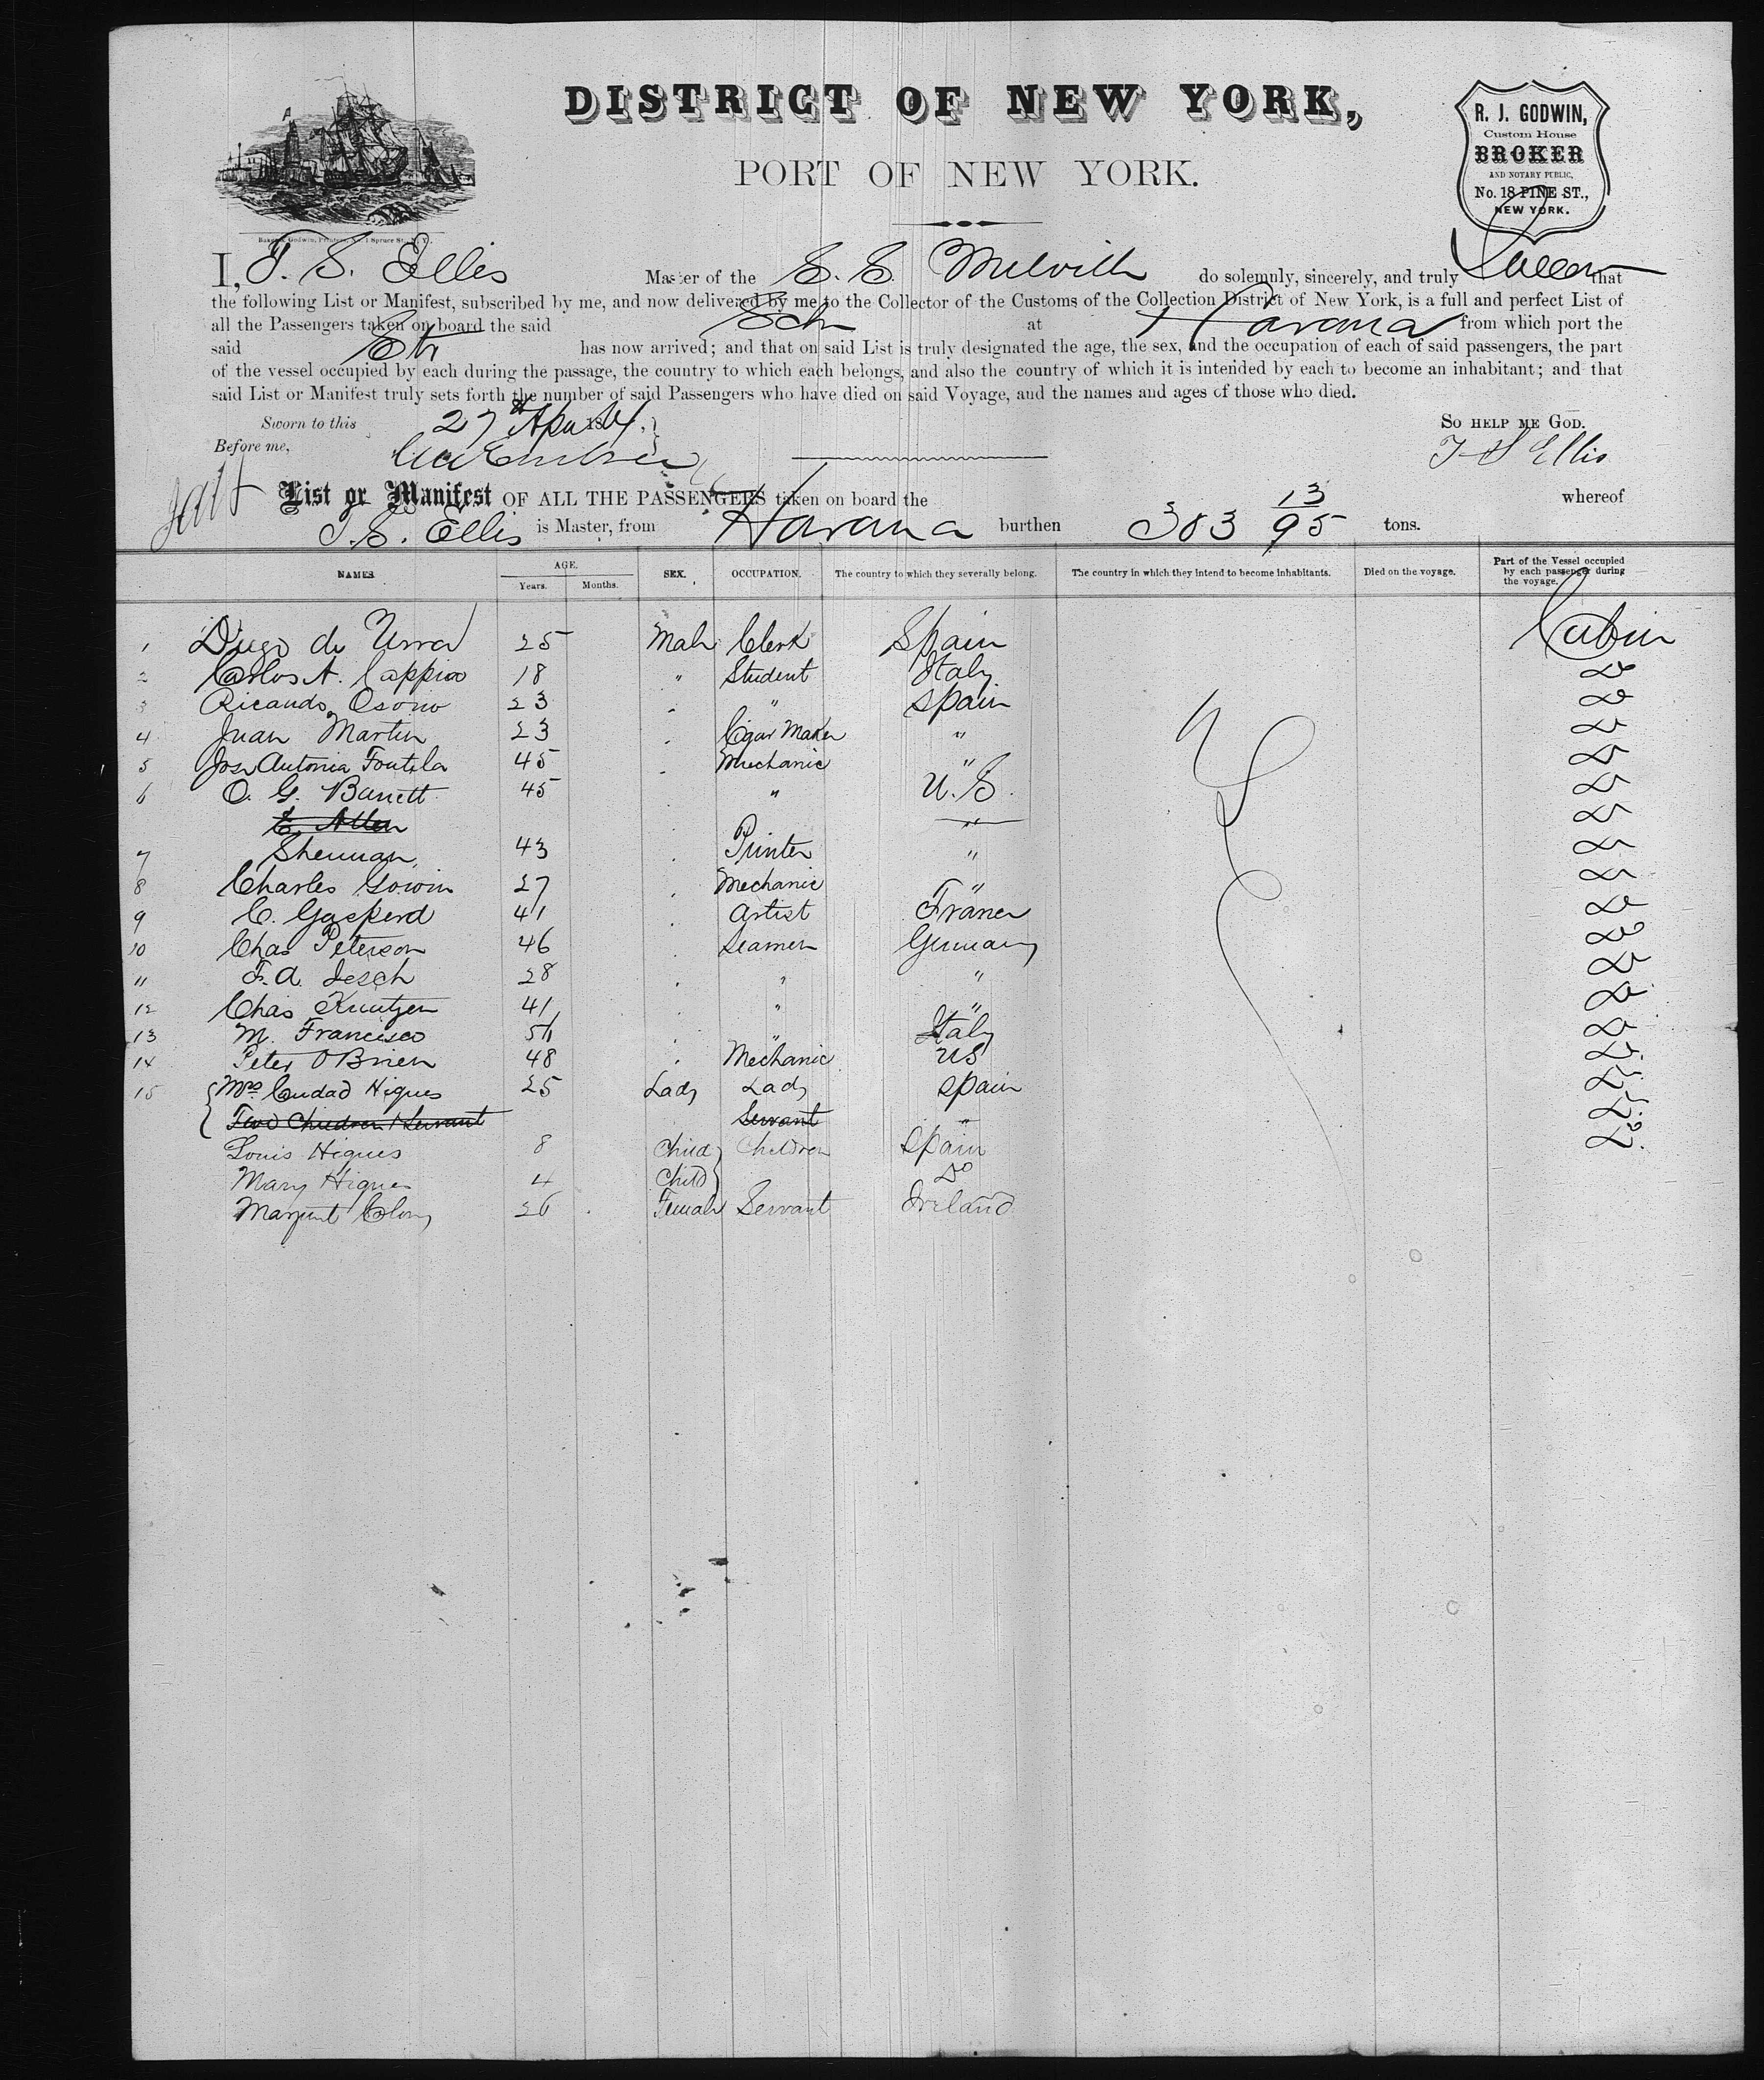 DISTRICT OF NEW YORK,
PORT OF NEW YORK.
R. J. GODWIN,
Custom House
BROKER
AND NOTARY PUBLIC,
No. 18 PINE ST.,
NEW YORK.
Baker & Godwin, Printers, No. 1 Spruce St., N. Y.
I, T. S. Ellis Master of the S. S. Melville do solemnly, sincerely, and truly Swear that
the following List or Manifest, subscribed by me, and now delivered by me to the Collector of the Customs of the Collection District of New York, is a full and perfect List of
all the Passengers taken on board the said Sch at Havana from which port the
said Str has now arrived; and that on said List is truly designated the age, the sex, and the occupation of each of said passengers, the part
of the vessel occupied by each during the passage, the country to which each belongs, and also the country of which it is intended by each to become an inhabitant; and that
said List or Manifest truly sets forth the number of said Passengers who have died on said Voyage, and the names and ages of those who died.
Sworn to this 27th 18 So HELP ME GOD.
Before me, T S Ellis
List or Manifest OF ALL THE PASSENGERS taken on board the whereof
T. S. Ellis is Master, from Havana burthen 303 13/95 tons.
NAMES. AGE. Years. Months. SEX. OCCUPATION. The country to which they severally belong. The country in which they intend to become inhabitants. Died on the voyage. Part of the Vessel occupied by each passenger during the voyage.
1 Diego de Urra 25 Male Clerk Spain Cabin
2 Carlos A. Cappia 18 " Student Italy Do
3 Ricardo Osorio 23 " " Spain Do
4 Juan Martin 23 " Cigar Maker " Do
5 Jose Antonia Fontela 45 " Mechanic " Do
6 O. G. Barrett 45 " " U.S. Do
E. Allen " Do
7 Sherman 43 " Printer " Do
8 Charles Gowin 27 " Mechanic " Do
9 C. Gasperd 41 " Artist France Do
10 Chas Peterson 46 " Seamen Germany Do
11 F. A. Jesch 28 " " " Do
12 Chas Knutzen 41 " " " Do
13 M. Francisco " " Italy Do
14 Peter OBrien 48 " Mechanic US Do
15 Mrs Cudad Higues 25 Lady Lady Spain Do
Two Children & Servant Servant " Do
Louis Higues 8 Child Children Spain Do
Mary Higues 4 Child Do
Margaret 26 Female Servant Ireland